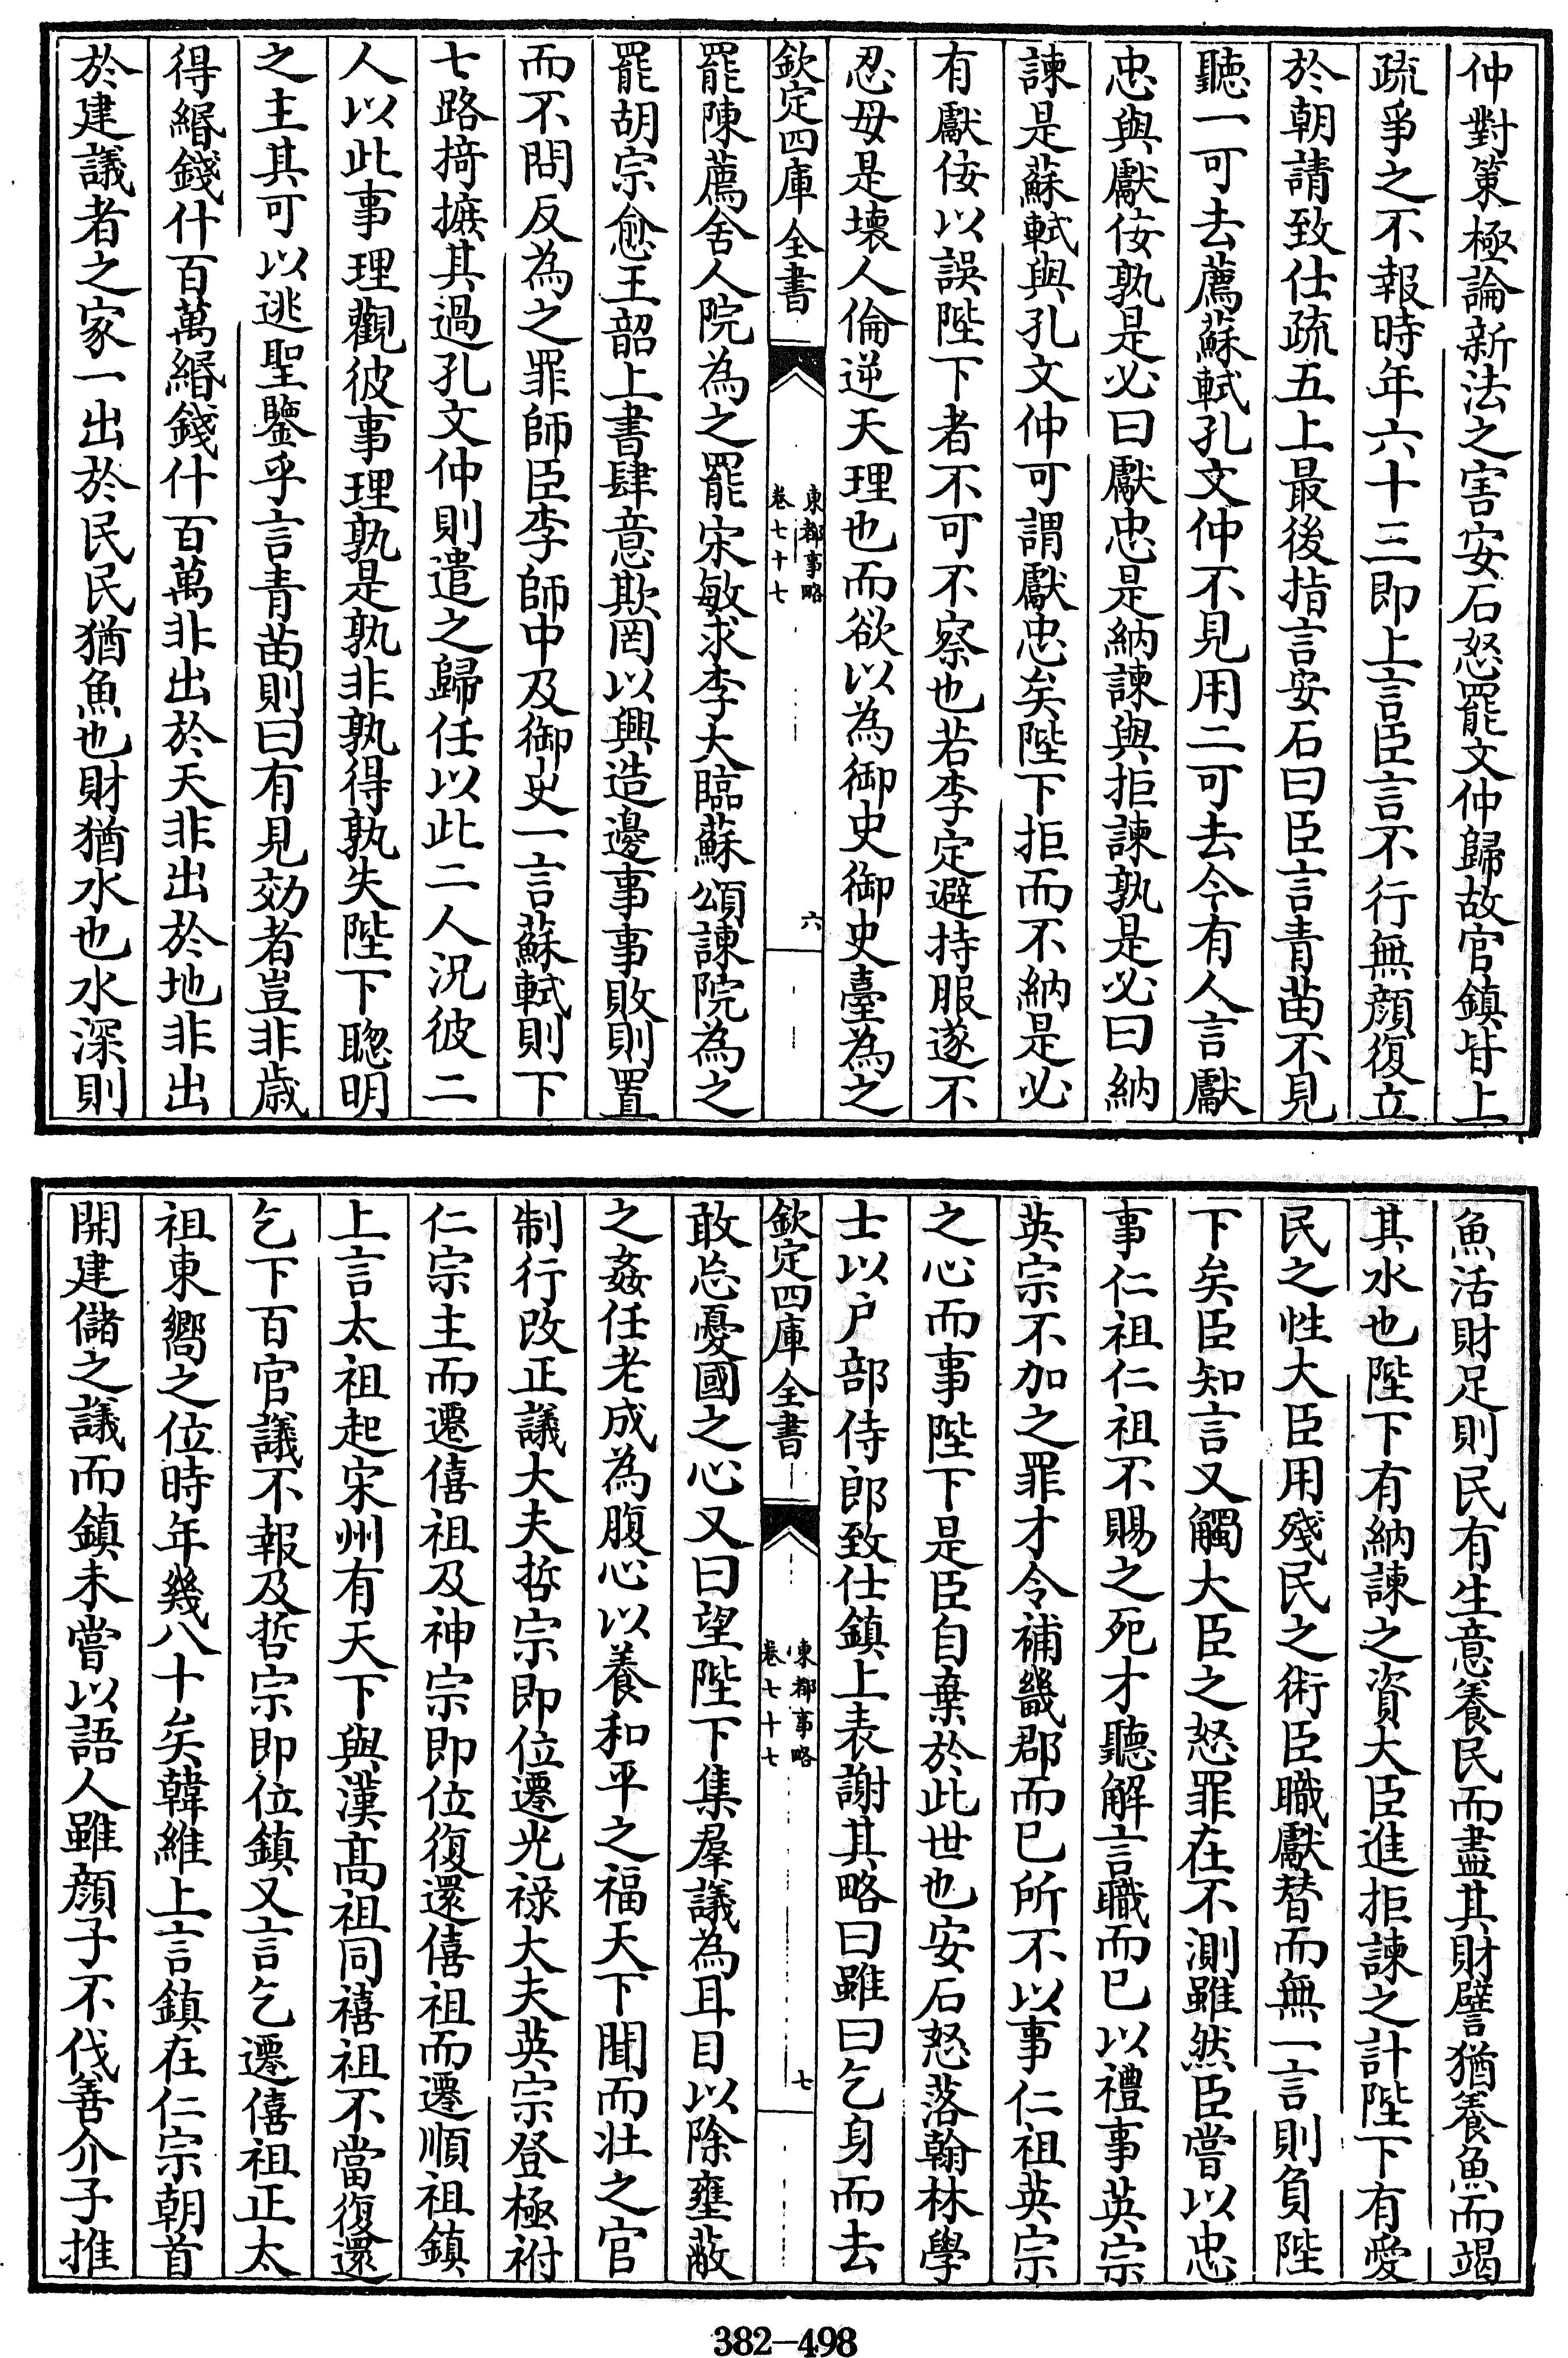 仲對策極論新法之害安石怒罷文仲歸故官鎮皆上
疏爭之不報時年六十三即上言臣言不行無顔復立
於朝請致仕疏五上最後指言安石曰臣言青苗不見
聽一可去薦蘇軾孔文仲不見用二可去今有人言獻
忠與獻佞孰是必曰獻忠是納諫與拒諫孰是必曰納
諫是蘇軾與孔文仲可謂獻忠矣陛下拒而不納是必
有獻佞以誤陛下者不可不察也若李定避持服遂不
忍母是壞人倫逆天理也而欲以為御史御史臺為之
欽定四庫全書
東都事略
卷七十七
六
罷陳薦舍人院為之罷宋敏求李大臨蘇頌諫院為之
罷胡宗愈王韶上書肆意欺罔以興造邊事事敗則置
而不問反為之罪師臣李師中及御史一言蘇軾則下
七路掎摭其過孔文仲則遣之歸任以此二人況彼二
人以此事理觀彼事理孰是孰非孰得孰失陛下聰明
之主其可以逃聖鑒乎言青苗則曰有見効者豈非歳
得緡錢什百萬緡錢什百萬非出於天非出於地非出
於建議者之家一出於民民猶魚也財猶水也水深則
魚活財足則民有生意養民而盡其財譬猶養魚而竭
其水也陛下有納諫之資大臣進拒諫之計陛下有愛
民之性大臣用殘民之術臣職獻替而無一言則負陛
下矣臣知言又觸大臣之怒罪在不測雖然臣嘗以忠
事仁祖仁祖不賜之死才聽解言職而已以禮事英宗
英宗不加之罪才令補畿郡而已所不以事仁祖英宗
之心而事陛下是臣自棄於此世也安石怒落翰林學
士以户部侍郎致仕鎮上表謝其略曰雖曰乞身而去
欽定四庫全書
東都事略
卷七十七
七
敢忘憂國之心又曰望陛下集羣議為耳目以除壅蔽
之姦任老成為腹心以養和平之福天下聞而壯之官
制行改正議大夫哲宗即位遷光禄大夫英宗登極祔
仁宗主而遷僖祖及神宗即位復還僖祖而遷順祖鎮
上言太祖起宋州有天下與漢髙祖同禧祖不當復還
乞下百官議不報及哲宗即位鎮又言乞遷僖祖正太
祖東嚮之位時年幾八十矣韓維上言鎮在仁宗朝首
開建儲之議而鎮未嘗以語人雖顔子不伐善介子推
382—498